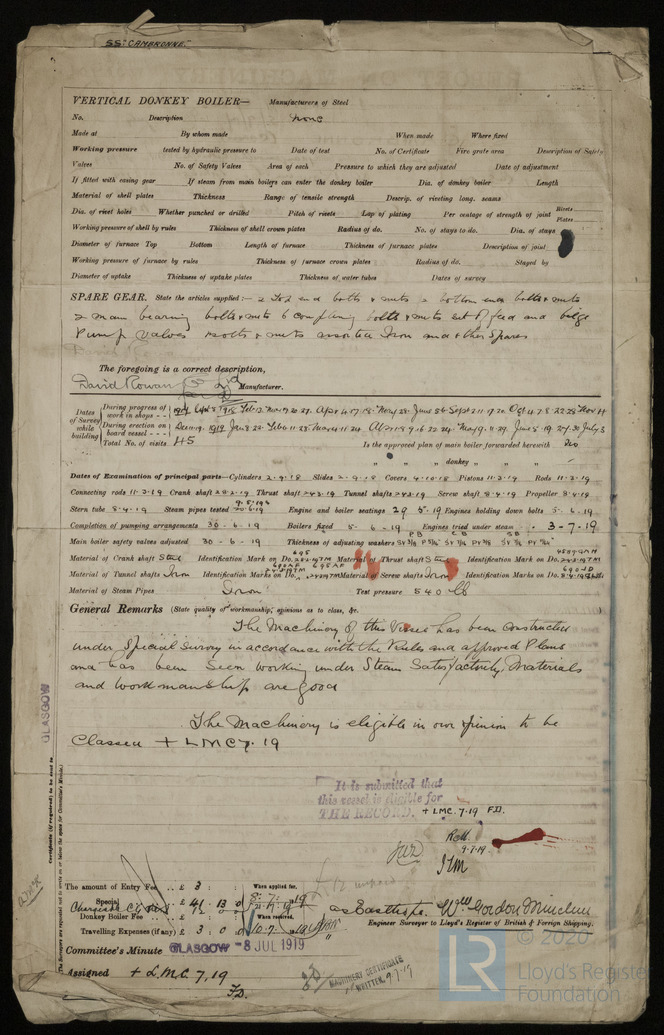 SS "CAMBRONNE."
VERTICAL DONKEY BOILER— Manufacturers of Steel
No. Description None
Made at By whom made When made Where fixed
Working pressure tested by hydraulic pressure to Date of test No. of Certificate Fire grate area Description of Safety
Valves No. of Safety Valves Area of each Pressure to which they are adjusted Date of adjustment
If fitted with easing gear If steam from main boilers can enter the donkey boiler Dia. of donkey boiler Length
Material of shell plates Thickness Range of tensile strength Descrip. of riveting long. seams
Dia. of rivet holes Whether punched or drilled Pitch of rivets Lap of plating Per centage of strength of joint Rivets Plates
Working pressure of shell by rules Thickness of shell crown plates Radius of do. No. of stays to do. Dia. of stays
Diameter of furnace Top Bottom Length of furnace Thickness of furnace plates Description of joint
Working pressure of furnace by rules Thickness of furnace crown plates Radius of do. Stayed by
Diameter of uptake Thickness of uptake plates Thickness of water tubes Dates of survey
SPARE GEAR. State the articles supplied:— 2 Top end bolts & nuts 2 bottom end bolts & nuts
2 main bearing bolts & nuts 6 coupling bolts & nuts set of feed and bilge
Pump valves bolts & nuts assorted Iron and other Spares
The foregoing is a correct description,
David Rowan & Co Ltd Manufacturer.
Dates of Survey while building
During progress of work in shops - -
During erection on board vessel - - -
Total No. of visits 45
Is the approved plan of main boiler forwarded herewith No
" " " donkey " " "
Dates of Examination of principal parts—Cylinders 2-9-18 Slides 2-9-18 Covers 4-10-18 Pistons 11-2-19 Rods 11-2-19
Connecting rods 11-2-19 Crank shaft 28-2-19 Thrust shaft 24-3-19 Tunnel shafts 24-3-19 Screw shaft 8-4-19 Propeller 8-4-19
Stern tube 8-4-19 Steam pipes tested Engine and boiler seatings 29-5-19 Engines holding down bolts 5-6-19
Completion of pumping arrangements 30-6-19 Boilers fixed 5-6-19 Engines tried under steam 3-7-19
Main boiler safety valves adjusted 30-6-19 Thickness of adjusting washers
Material of Crank shaft Steel Identification Mark on Do. Material of Thrust shaft Steel Identification Mark on Do.
Material of Tunnel shafts Iron Identification Marks on Do. Material of Screw shafts Iron Identification Marks on Do.
Material of Steam Pipes Iron Test pressure 540 lb
General Remarks (State quality of workmanship, opinions as to class, &c.
The Machinery of this Vessel has been constructed
under Special Survey in accordance with the Rules and approved Plans
and has been seen working under Steam Satisfactorily, Materials
and workmanship are good
The Machinery is eligible in our opinion to be
Classed + LMC 7.19
GLASGOW
Certificate (if required) to be sent to
(The Surveyors are requested not to write on or below the space for Committee's Minute.)
It is submitted that
this vessel is eligible for
THE RECORD. + LMC. 7.19 F.D.
9-7-19
The amount of Entry Fee .. £ 3 : When applied for,
Special .. £ 41 : 13 : 0
Donkey Boiler Fee .. £ When received,
Travelling Expenses (if any) £ 3 : 0 : 10.7.19
Wm Gordon
Engineer Surveyor to Lloyd's Register of British & Foreign Shipping.
Committee's Minute GLASGOW - 8 JUL 1919
Assigned + L.M.C. 7.19
F.D.
MACHINERY CERTIFICATE
WRITTEN. 9.7.19
© 2020
LR Lloyd's Register
Foundation